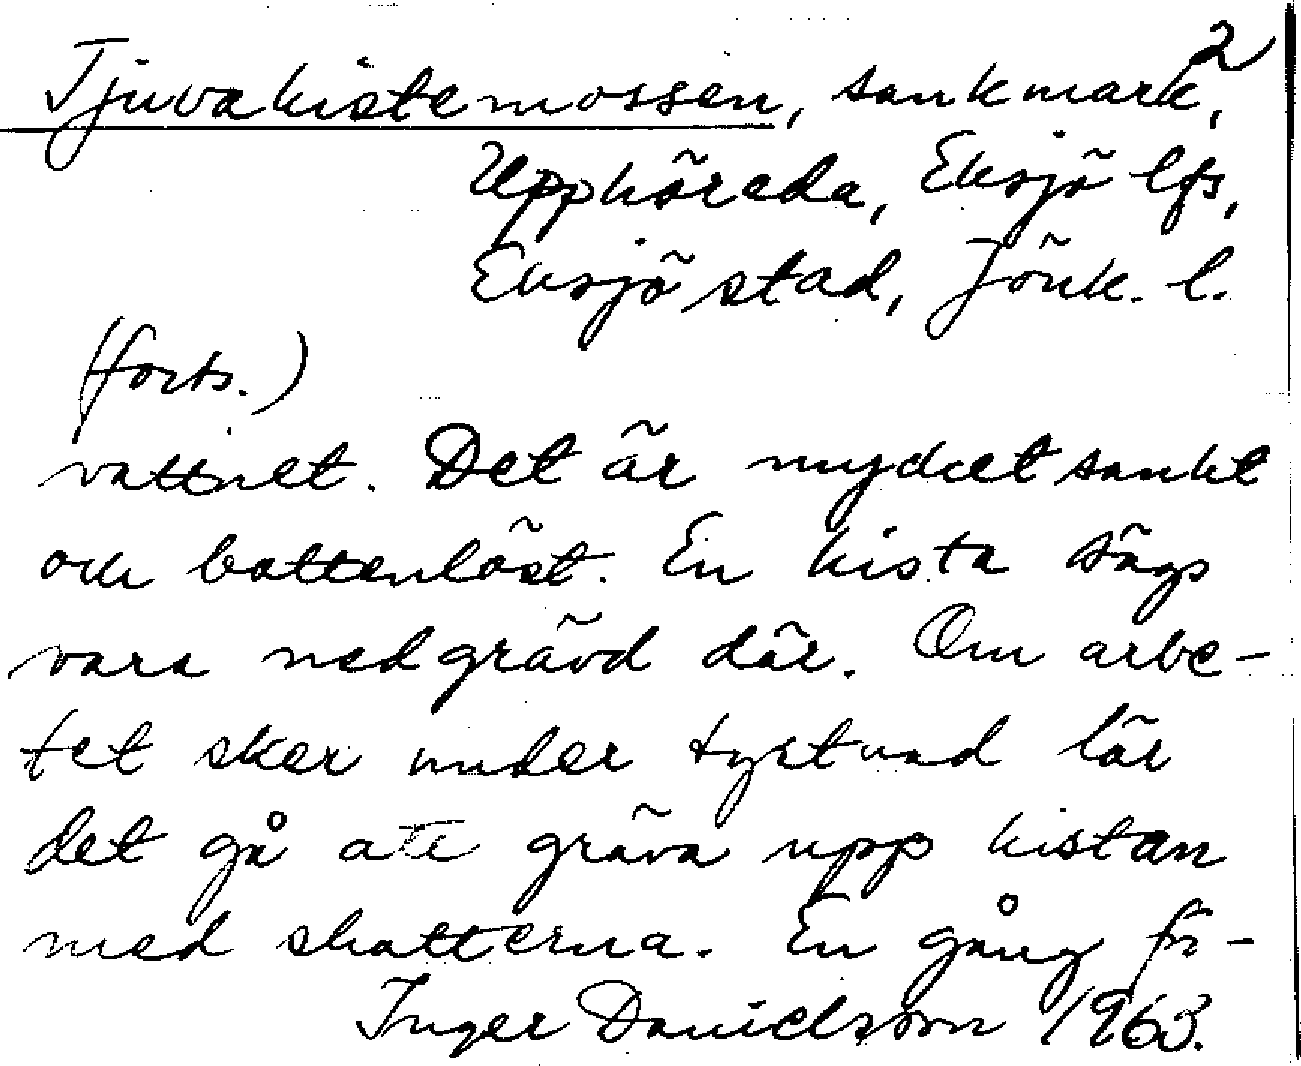 2
Tjuvakistemossen, sankmark,
Upphörada, Eksjö lfs,
Eksjö stad, Jönk. l.
(forts.)
vattnet. Det är mycket sankt
och bottenlöst. En kista sägs
vara nedgrävd där. Om arbe-
tet sker under tystnad lär
det gå att gräva upp kistan
med skatterna. En gång fö-
Inger Danielsson 1963.